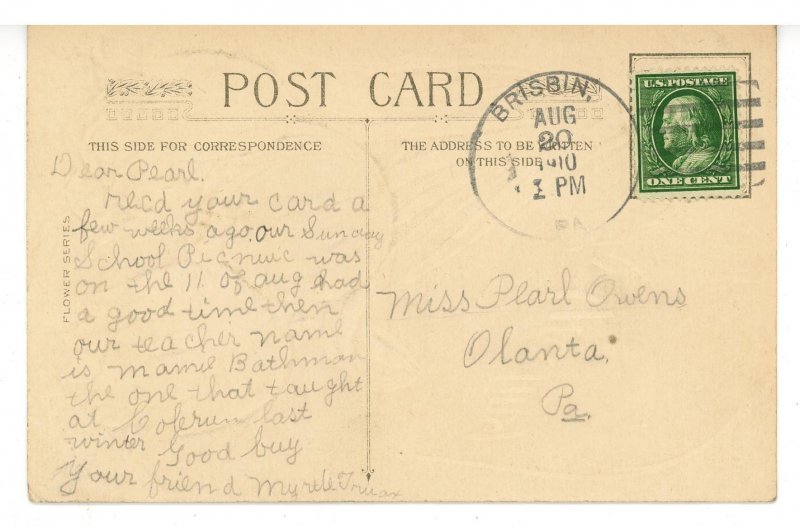 POST CARD
THIS SIDE FOR CORRESPONDENCE
THE ADDRESS TO BE WRITTEN
ON THIS SIDE
BRISBIN,
AUG
20
1910
1 PM
PA
U.S. POSTAGE
ONE CENT
FLOWER SERIES
Dear Pearl.
recd your card a
few weeks ago. our Sunday
School Picnuc was
on the 11 of aug had
a good time then
our teacher name
is mamie Bathman
the one that taught
at last
winter Good buy
Your friend Myrtle Truax
Miss Pearl Owens
Olanta,
Pa.